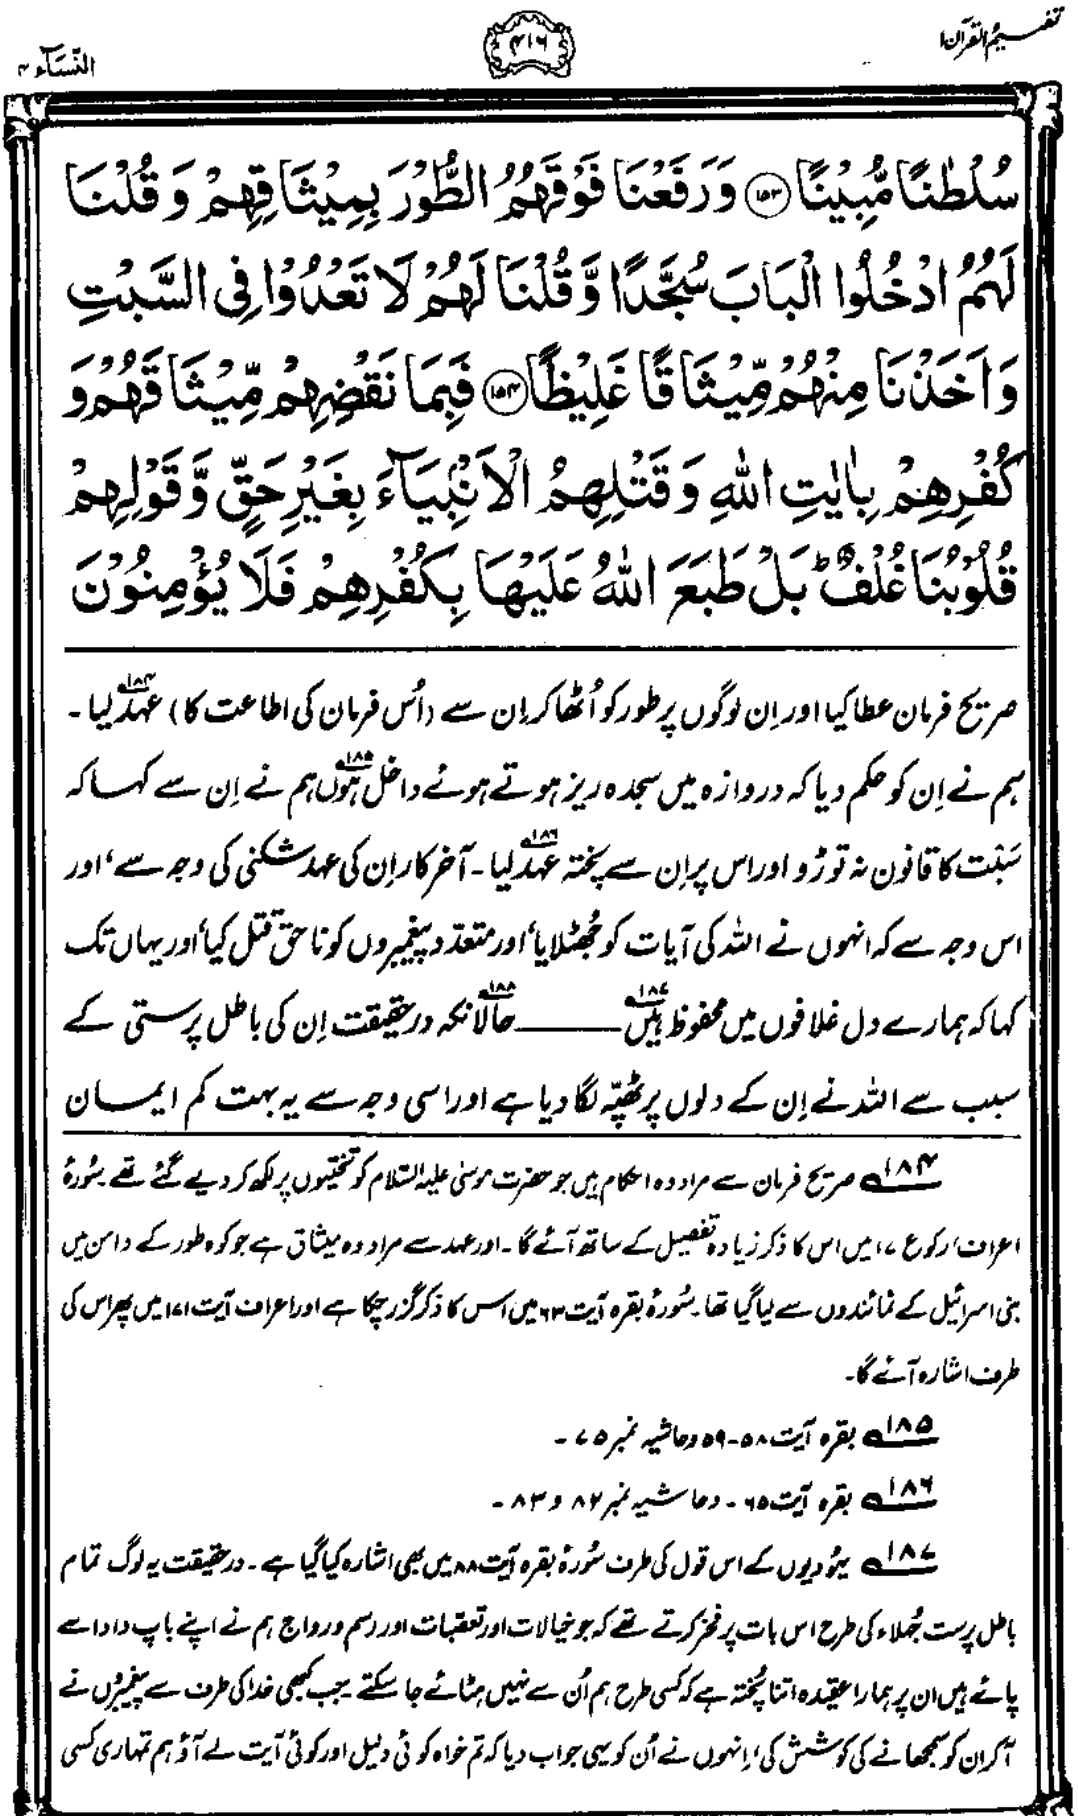 تفہیم القرآن ۱
۴۱۶
النسآء ۴
سُلْطٰنًا مُّبِيْنًا ﴿۱۵۳﴾ وَرَفَعْنَا فَوْقَهُمُ الطُّوْرَ بِمِيْثَاقِهِمْ وَقُلْنَا
لَهُمُ ادْخُلُوا الْبَابَ سُجَّدًا وَّقُلْنَا لَهُمْ لَا تَعْدُوْا فِي السَّبْتِ
وَاَخَذْنَا مِنْهُمْ مِّيْثَاقًا غَلِيْظًا ﴿۱۵۴﴾ فَبِمَا نَقْضِهِمْ مِّيْثَاقَهُمْ وَ
كُفْرِهِمْ بِاٰيٰتِ اللهِ وَقَتْلِهِمُ الْاَنْۢبِيَآءَ بِغَيْرِ حَقٍّ وَّقَوْلِهِمْ
قُلُوْبُنَا غُلْفٌ ؕ بَلْ طَبَعَ اللهُ عَلَيْهَا بِكُفْرِهِمْ فَلَا يُؤْمِنُوْنَ
صریح فرمان عطا کیا اور اِن لوگوں پر طور کو اُٹھا کر اِن سے (اُس فرمان کی اطاعت کا) عہد۱۸۴ لیا۔
ہم نے اِن کو حکم دیا کہ دروازہ میں سجدہ ریز ہوتے ہوئے داخل ہوں۱۸۵ ہم نے اِن سے کہا کہ
سَبْت کا قانون نہ توڑو اور اس پر اِن سے پختہ عہد۱۸۶ لیا۔ آخر کار اِن کی عہد شکنی کی وجہ سے، اور
اس وجہ سے کہ انہوں نے اللہ کی آیات کو جُھٹلایا، اور متعدّد پیغمبروں کو ناحق قتل کیا، اور یہاں تک
کہا کہ ہمارے دل غلافوں میں محفوظ ہیں۱۸۷ ــــــــ حالانکہ۱۸۸ درحقیقت اِن کی باطل پرستی کے
سبب سے اللہ نے اِن کے دلوں پر ٹھپّہ لگا دیا ہے اور اسی وجہ سے یہ بہت کم ایمان
۱۸۴ صریح فرمان سے مراد وہ احکام ہیں جو حضرت موسیٰ علیہ السّلام کو تختیوں پر لکھ کر دیے گئے تھے۔ سُورۂ
اعراف، رکوع ۱۷ میں اس کا ذکر زیادہ تفصیل کے ساتھ آئے گا۔ اور عہد سے مراد وہ میثاق ہے جو کوہ طور کے دامن میں
بنی اسرائیل کے نمائندوں سے لیا گیا تھا۔ سُورۂ بقرہ آیت ۶۳ میں اس کا ذکر گزر چکا ہے اور اعراف آیت ۱۷۱ میں پھر اس کی
طرف اشارہ آئے گا۔
۱۸۵ بقرہ آیت ۵۸-۵۹ و حاشیہ نمبر ۷۵۔
۱۸۶ بقرہ آیت ۶۵۔ و حاشیہ نمبر ۸۲ و ۸۳۔
۱۸۷ یہُودیوں کے اس قول کی طرف سُورۂ بقرہ آیت ۸۸ میں بھی اشارہ کیا گیا ہے۔ درحقیقت یہ لوگ تمام
باطل پرست جُہلاء کی طرح اس بات پر فخر کرتے تھے کہ جو خیالات اور تعصّبات اور رسم و رواج ہم نے اپنے باپ دادا سے
پائے ہیں ان پر ہمارا عقیدہ اتنا پُختہ ہے کہ کسی طرح ہم اُن سے نہیں ہٹائے جا سکتے۔ جب کبھی خدا کی طرف سے پیغمبروں نے
آ کر ان کو سمجھانے کی کوشش کی، اِنہوں نے اُن کو یہی جواب دیا کہ تم خواہ کوئی دلیل اور کوئی آیت لے آؤ ہم تمہاری کسی